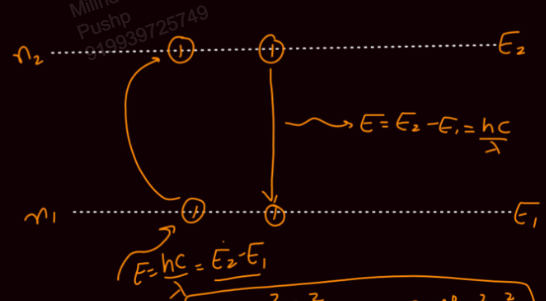 Pushp
919939725749
n₂ E₂
E = E₂ - E₁ = hc/λ
n₁ E₁
E = hc/λ = E₂ - E₁